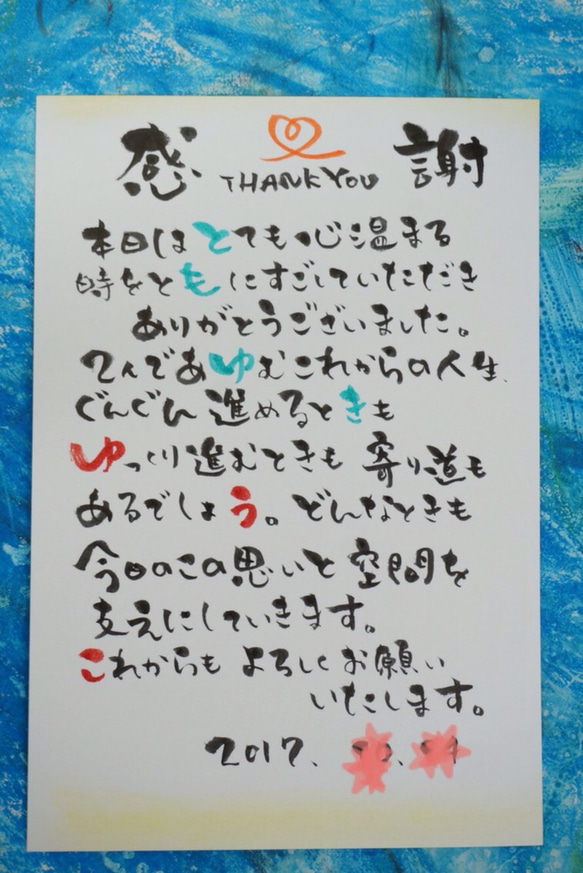 感 THANK YOU 謝
本日はとても心温まる
時をともにすごしていただき
ありがとうございました。
2人であゆむこれからの人生、
ぐんぐん進めるときも
ゆっくり進むときも 寄り道も
あるでしょう。どんなときも
今日のこの思いと空間を
支えにしていきます。
これからも よろしくお願い
いたします。
2017.